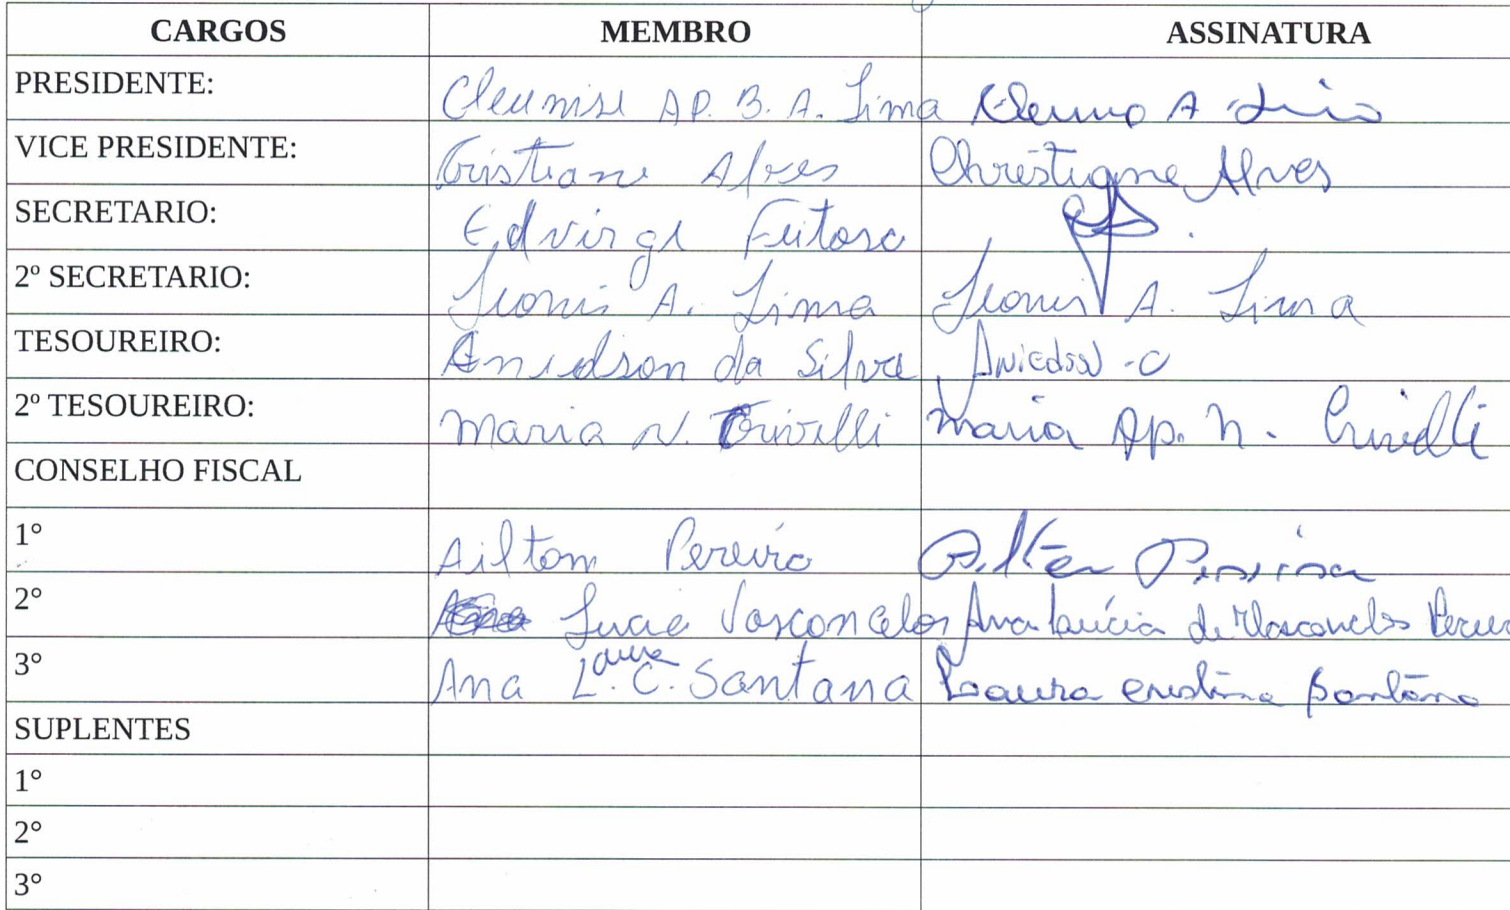 CARGOS MEMBRO ASSINATURA
PRESIDENTE: Cleunise AP. B. A. Lima A Lima
VICE PRESIDENTE: Cristiane Alves Christyane Alves
SECRETARIO: Edvirge Feitosa
2º SECRETARIO: Leonis A. Lima Leonis A. Lima
TESOUREIRO: Enedson da Silva
2º TESOUREIRO: Maria N. Crivelli Maria Ap. N. Crivelli
CONSELHO FISCAL
1° Ailtom Pereira Pereira
2° Lucia Vasconcelos Ana Laúcia de Vasconcelos
3° Ana Laura L. C. Santana Laura Cristina Santana
SUPLENTES
1°
2°
3°